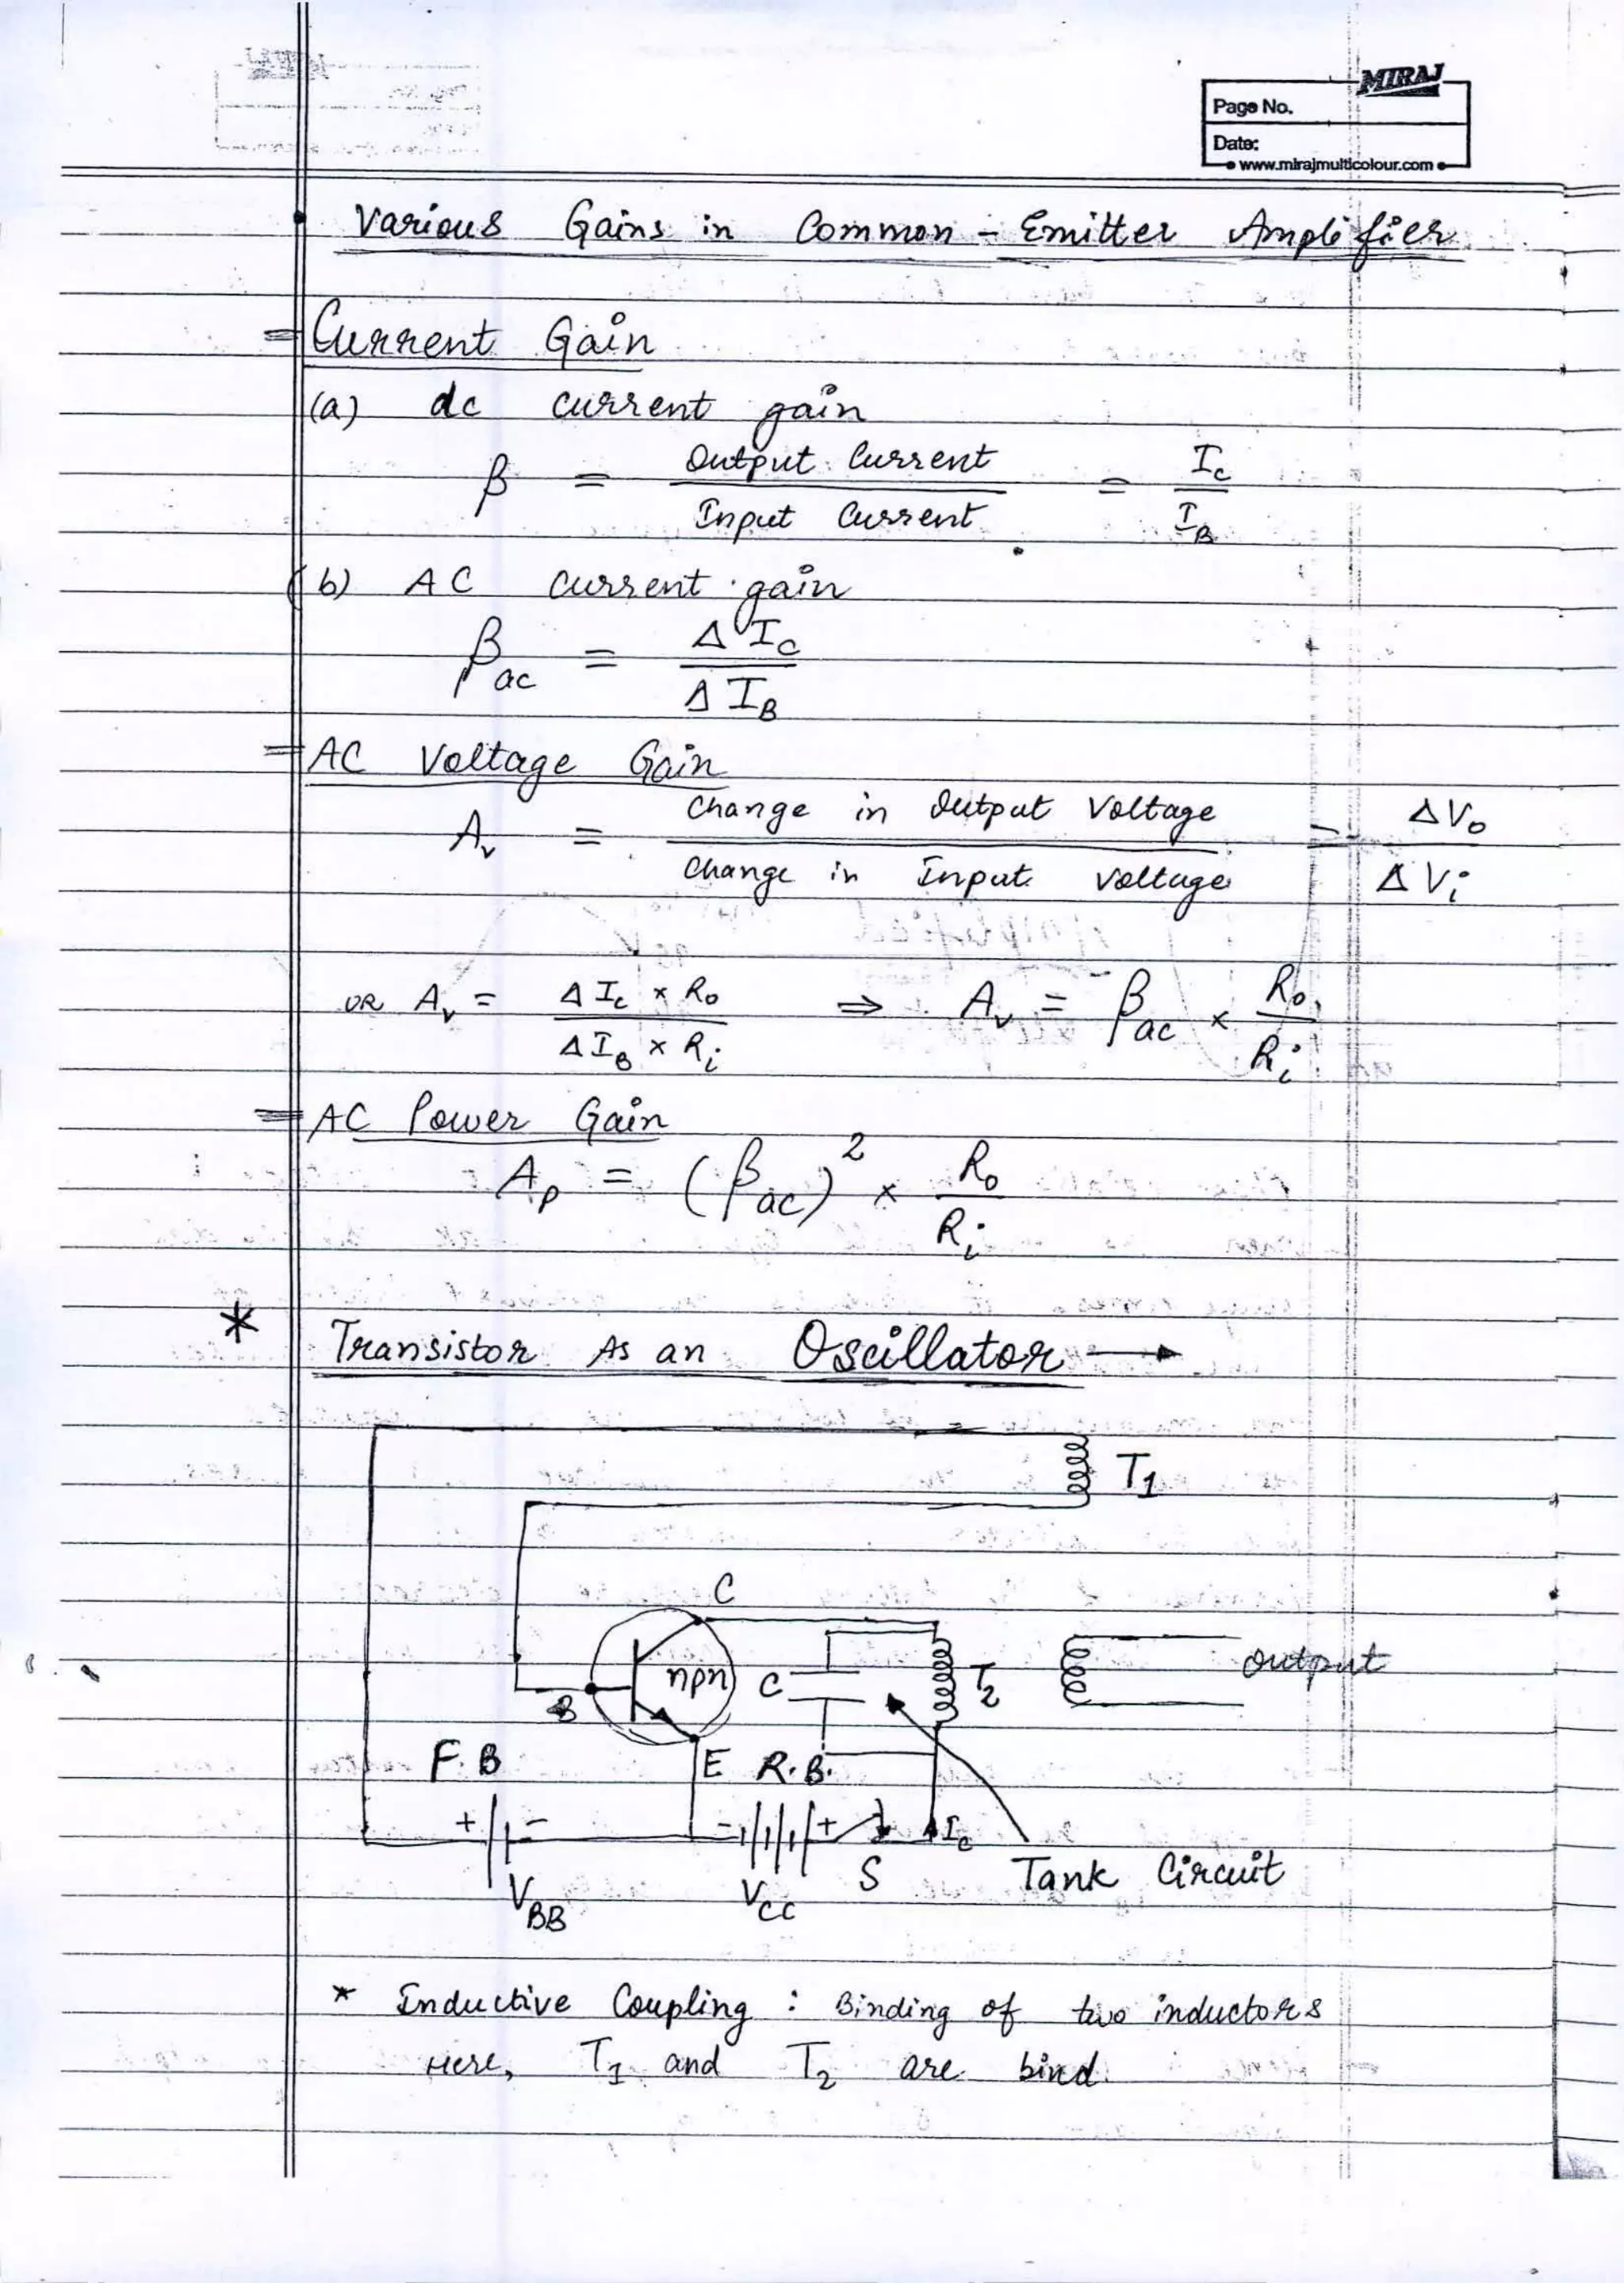 MIRAJ
Page No.
Date:
www.mirajmulticolour.com
• Various Gains in Common - Emitter Amplifier
= Current Gain
(a) dc current gain
β = Output Current / Input Current = I_C / I_B
(b) AC current gain
β_ac = Δ I_C / Δ I_B
= AC Voltage Gain
A_v = Change in Output Voltage / Change in Input Voltage = ΔV_o / ΔV_i
OR A_v = Δ I_C × R_o / Δ I_B × R_i ⇒ A_v = β_ac × R_o / R_i
= AC Power Gain
A_p = (β_ac)² × R_o / R_i
* Transistor As an Oscillator →
T_1
C
npn C T_2 Output
B
F.B E R.B.
+ - - + I_C
S Tank Circuit
V_BB V_CC
* Inductive Coupling : Binding of two inductors
Here, T_1 and T_2 are bind.